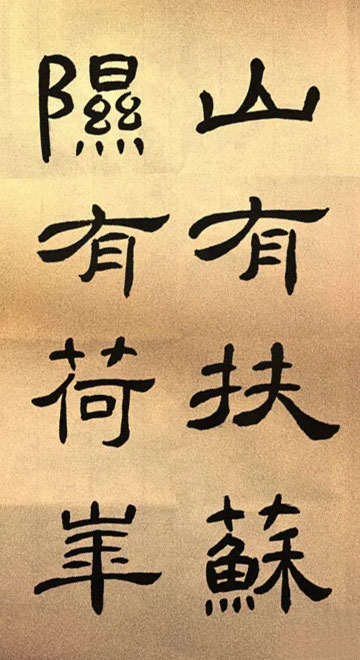 山有扶蘇
隰有荷華